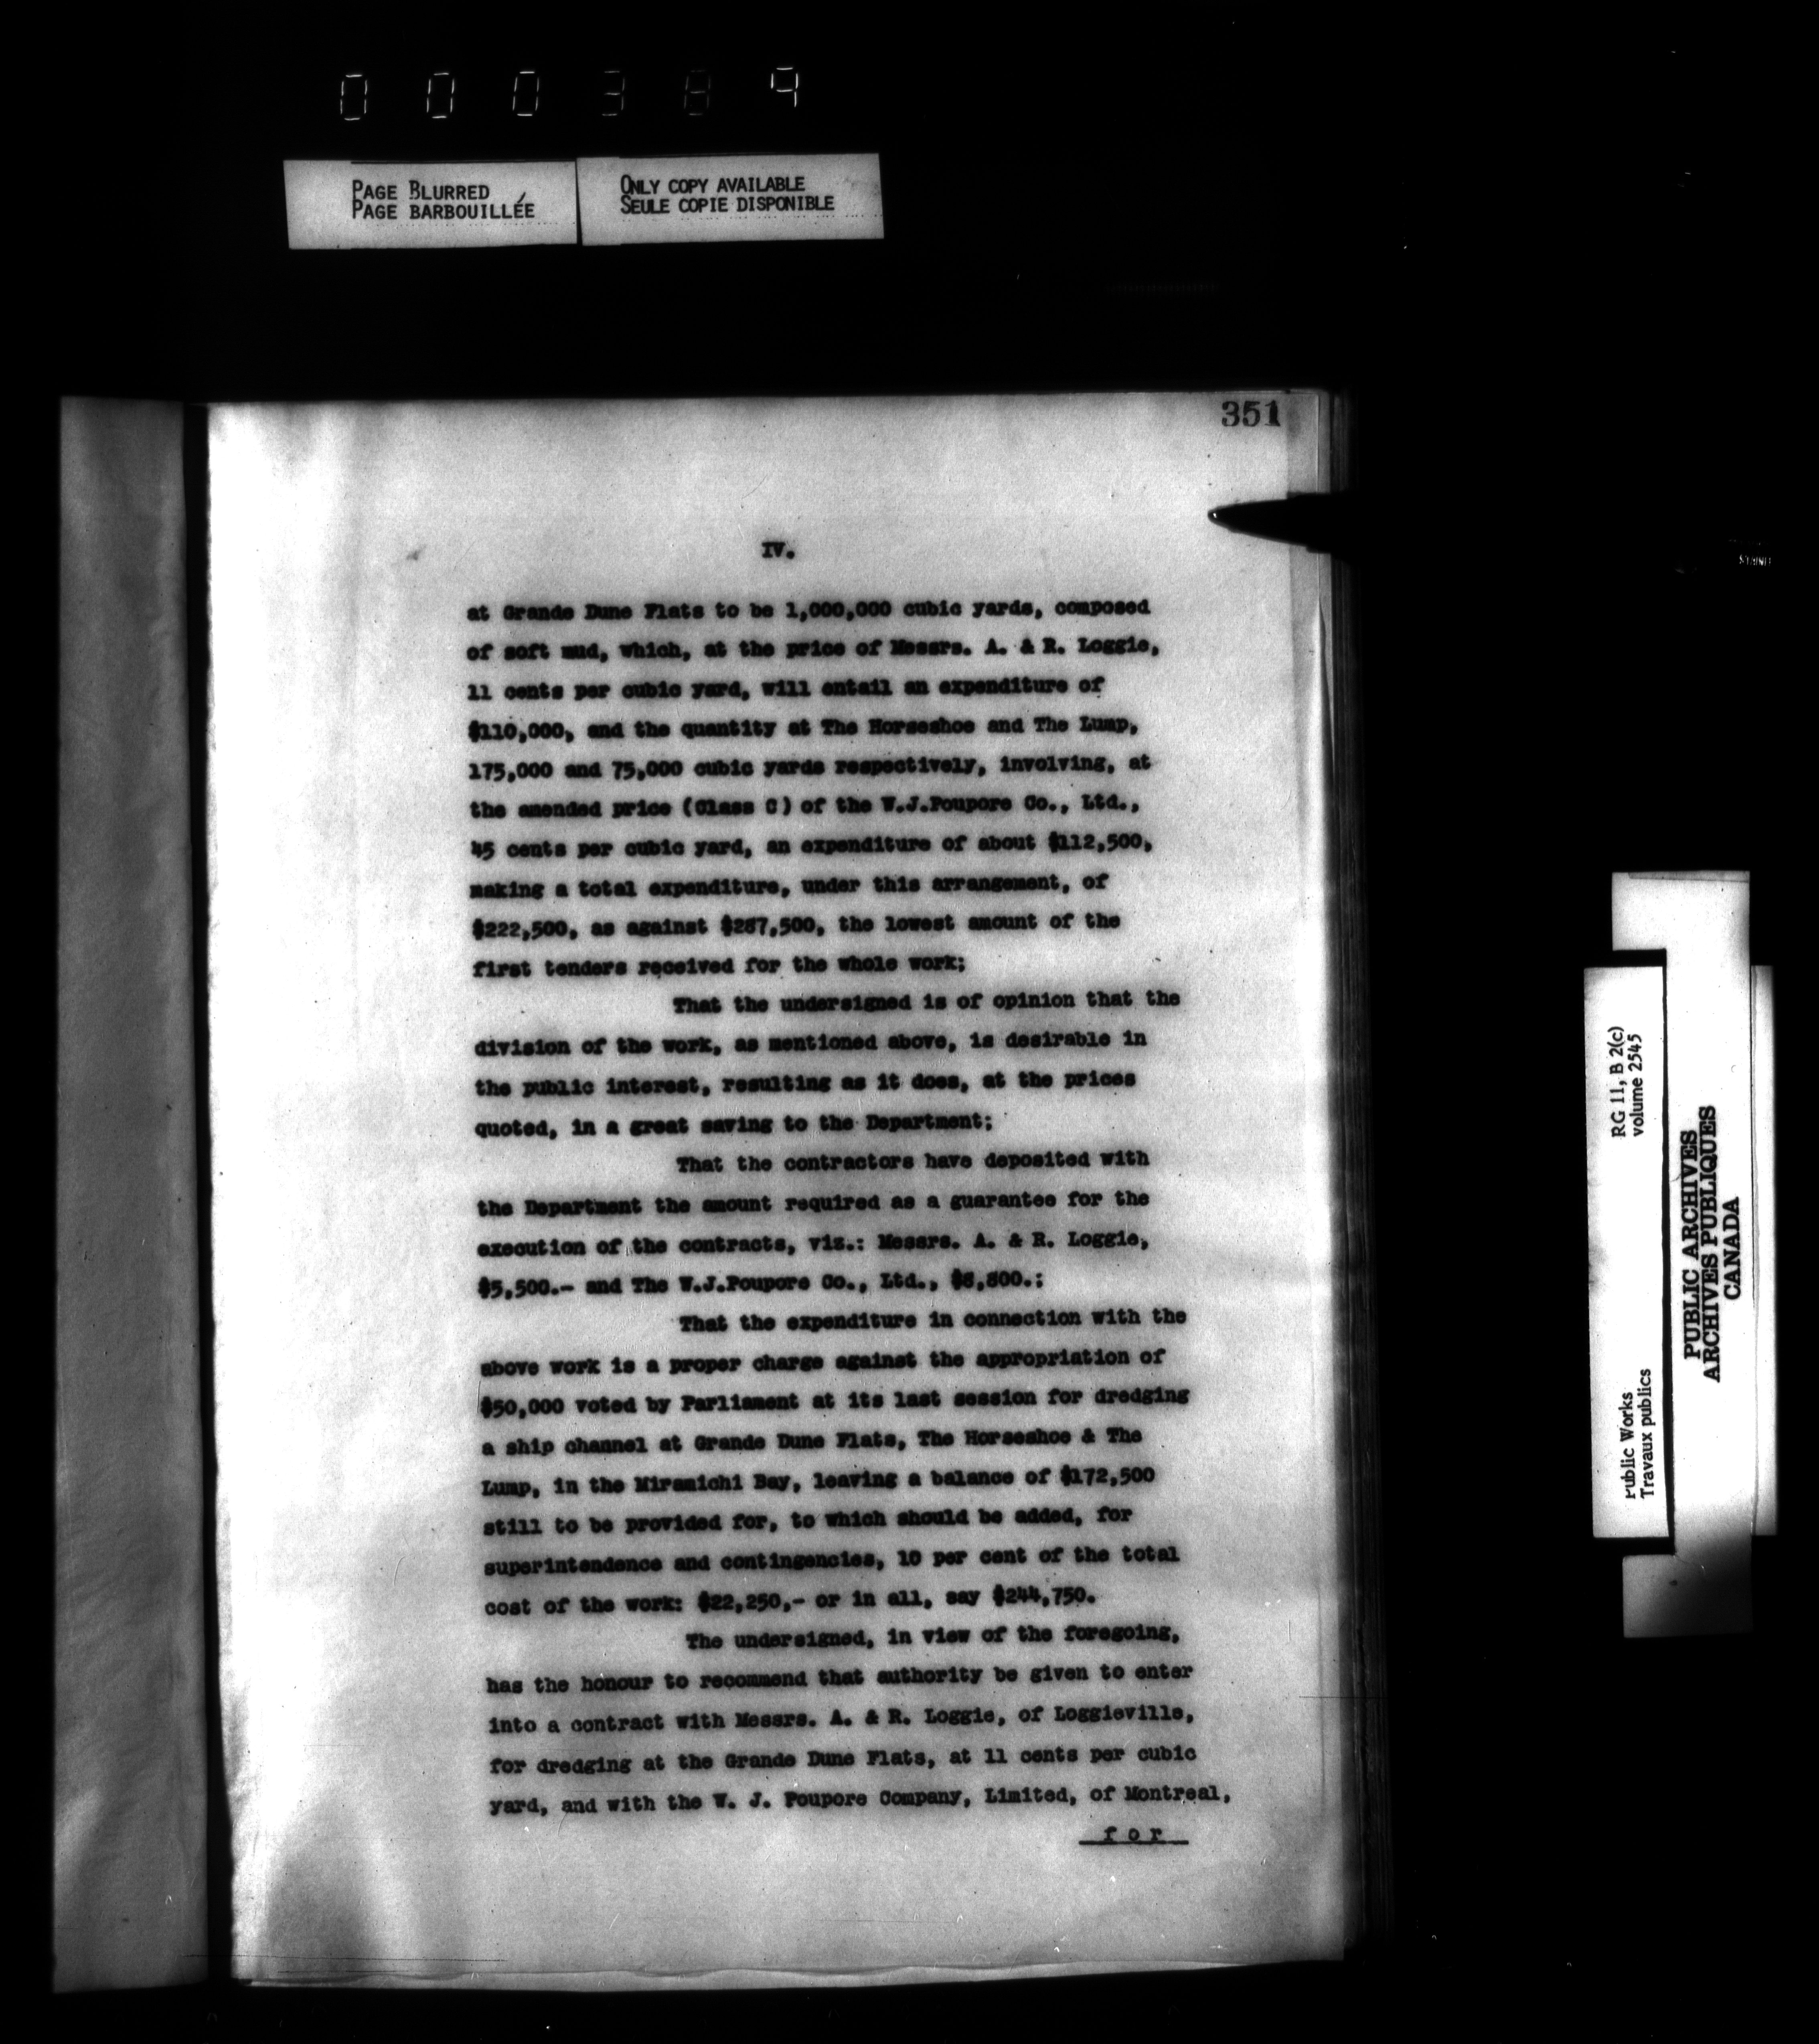 000389
PAGE BLURRED
PAGE BARBOUILLÉE
ONLY COPY AVAILABLE
SEULE COPIE DISPONIBLE
351
IV.
at Grande Dune Flats to be 1,000,000 cubic yards, composed
of soft mud, which, at the price of Messrs. A. & R. Loggie,
11 cents per cubic yard, will entail an expenditure of
$110,000, and the quantity at The Horseshoe and The Lump,
175,000 and 75,000 cubic yards respectively, involving, at
the amended price (Class C) of the W.J.Poupore Co., Ltd.,
45 cents per cubic yard, an expenditure of about $112,500,
making a total expenditure, under this arrangement, of
$222,500, as against $287,500, the lowest amount of the
first tenders received for the whole work;
That the undersigned is of opinion that the
division of the work, as mentioned above, is desirable in
the public interest, resulting as it does, at the prices
quoted, in a great saving to the Department;
That the contractors have deposited with
the Department the amount required as a guarantee for the
execution of the contracts, viz.: Messrs. A. & R. Loggie,
$5,500.- and The W.J.Poupore Co., Ltd.,
That the expenditure in connection with the
above work is a proper charge against the appropriation of
$50,000 voted by Parliament at its last session for dredging
a ship channel at Grande Dune Flats, The Horseshoe & The
Lump, in the Miramichi Bay, leaving a balance of $172,500
still to be provided for, to which should be added, for
superintendence and contingencies, 10 per cent of the total
cost of the work: $22,250,- or in all, say $244,750.
The undersigned, in view of the foregoing,
has the honour to recommend that authority be given to enter
into a contract with Messrs. A. & R. Loggie, of Loggieville,
for dredging at the Grande Dune Flats, at 11 cents per cubic
yard, and with the W. J. Poupore Company, Limited, of Montreal,
for
Public Works
Travaux publics
RG 11, B 2(c)
volume 2545
PUBLIC ARCHIVES
ARCHIVES PUBLIQUES
CANADA